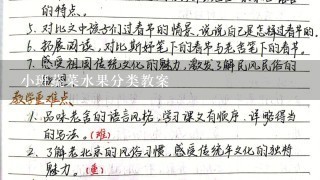 的特点。
5. 对比文中孩子们过春节的情景,说说自己是怎样过春节的。
6. 拓展阅读,对比斯好笔下的春节与老舍笔下的春节。
7. 感受祖国传统文化的魅力,激发了解民风民俗的
小班蔬菜水果分类教案
教学重难点
1. 品味老舍的语言风格,学习课文有顺序、详略得当
的写法。(难)
2. 了解老北京的风俗习惯,感受传统年文化的独特
魅力。(重)